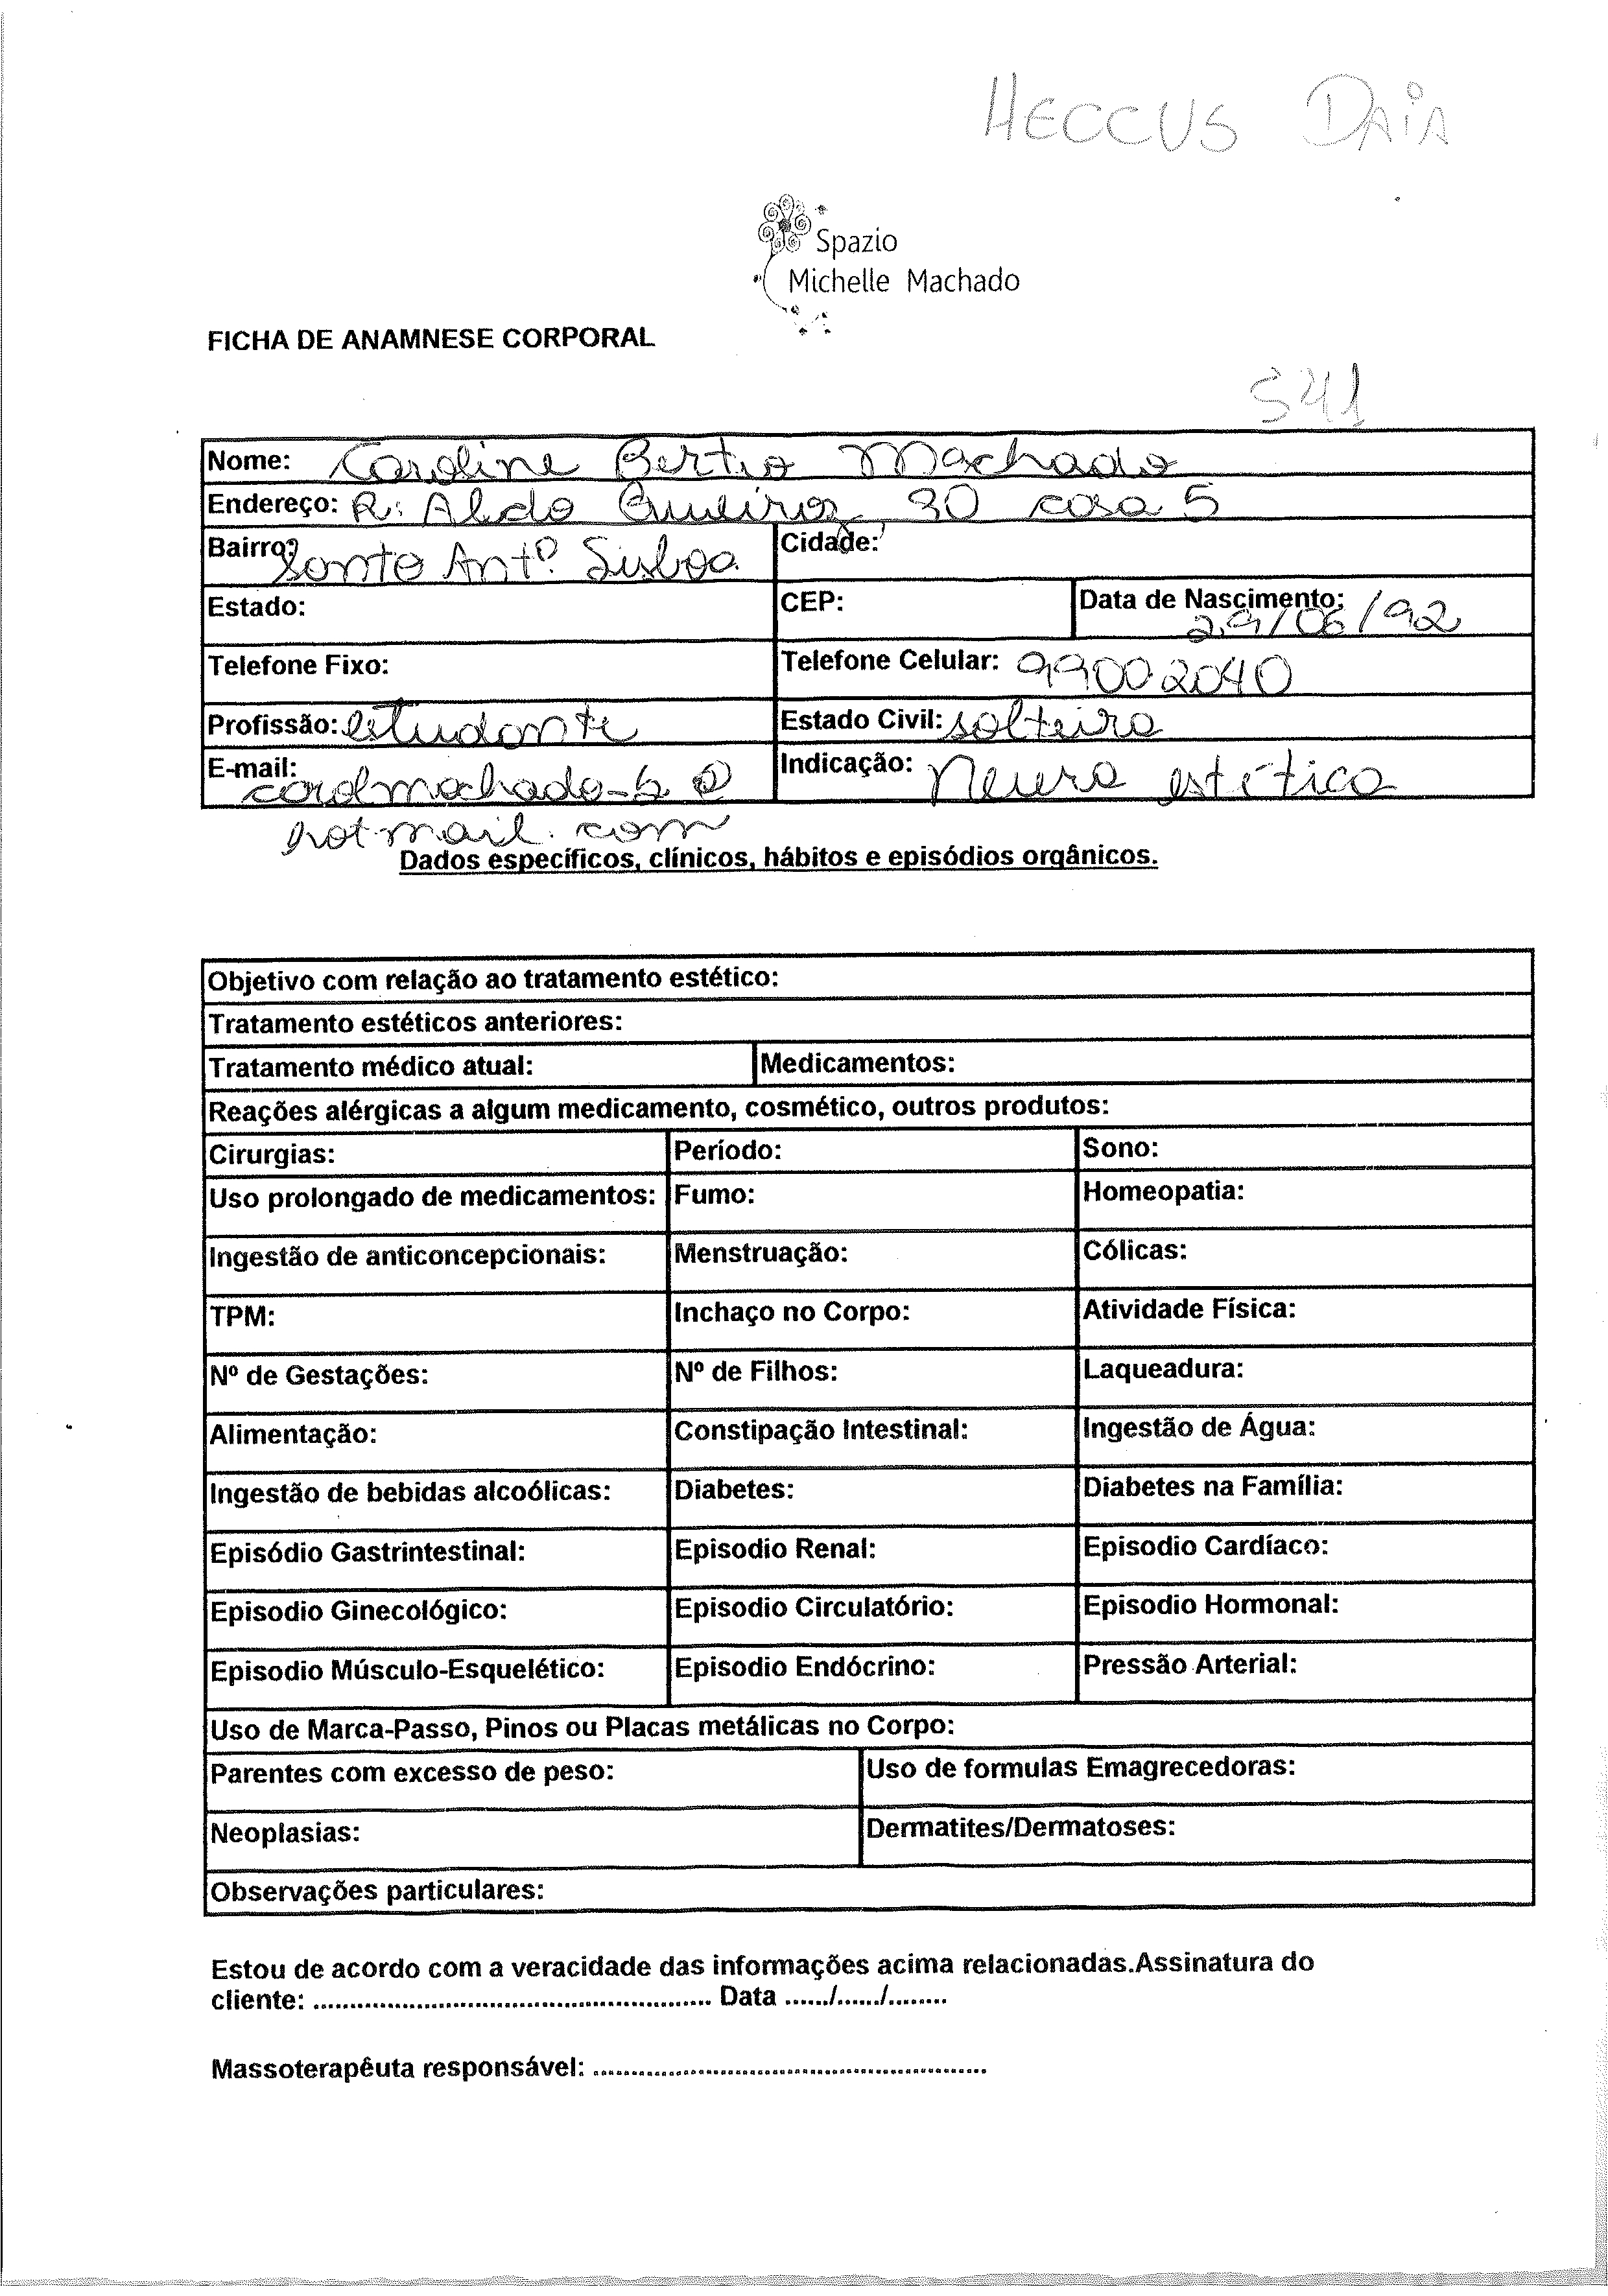 HECCUS DAIA
Spazio
Michelle Machado
FICHA DE ANAMNESE CORPORAL
541
Nome: Caroline Machado
Endereço: R: Aldo Queiroz 30 casa 5
Bairro: Santo Antº. Lisboa Cidade:
Estado: CEP: Data de Nascimento: 29/06/92
Telefone Fixo: Telefone Celular: 99002040
Profissão: estudante Estado Civil: solteira
E-mail: Indicação: Neura estética
hotmail.com
Dados específicos, clínicos, hábitos e episódios orgânicos.
Objetivo com relação ao tratamento estético:
Tratamento estéticos anteriores:
Tratamento médico atual: Medicamentos:
Reações alérgicas a algum medicamento, cosmético, outros produtos:
Cirurgias: Período: Sono:
Uso prolongado de medicamentos: Fumo: Homeopatia:
Ingestão de anticoncepcionais: Menstruação: Cólicas:
TPM: Inchaço no Corpo: Atividade Física:
Nº de Gestações: Nº de Filhos: Laqueadura:
Alimentação: Constipação Intestinal: Ingestão de Água:
Ingestão de bebidas alcoólicas: Diabetes: Diabetes na Família:
Episódio Gastrintestinal: Episodio Renal: Episodio Cardíaco:
Episodio Ginecológico: Episodio Circulatório: Episodio Hormonal:
Episodio Músculo-Esquelético: Episodio Endócrino: Pressão Arterial:
Uso de Marca-Passo, Pinos ou Placas metálicas no Corpo:
Parentes com excesso de peso: Uso de formulas Emagrecedoras:
Neoplasias: Dermatites/Dermatoses:
Observações particulares:
Estou de acordo com a veracidade das informações acima relacionadas.Assinatura do
cliente: ...................................................... Data ....../....../........
Massoterapêuta responsável: ......................................................